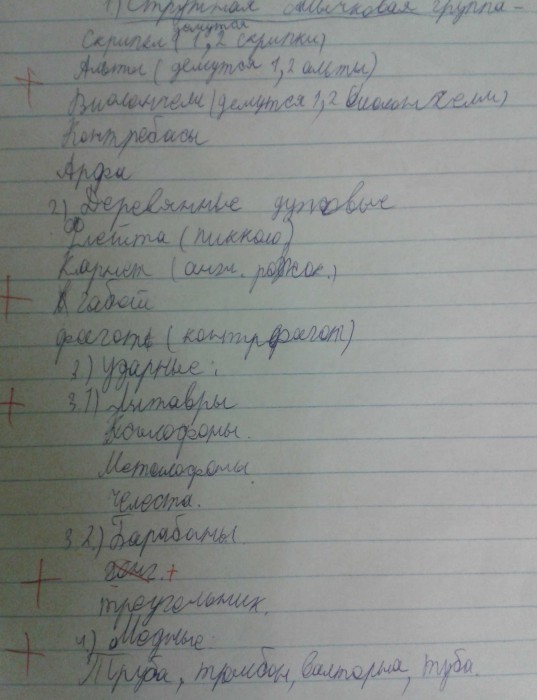 1) Струнная смычковая группа -
Скрипки (делятся 1,2 скрипки)
Альты (делятся 1,2 альты)
Виолончели (делятся 1,2 виолончели)
Контребасы
Арфа
2) Деревянные духовые
Флейта (пикколо)
Кларнет (англ. рожок.)
Габой
фагот (контрфагот)
3) Ударные:
3.1) Литавры
Ксилофоны.
Металофоны
Челеста.
3.2) Барабаны.
гонг. +
треугольник.
4) Медные:
Труба, тромбон, валторна, туба.